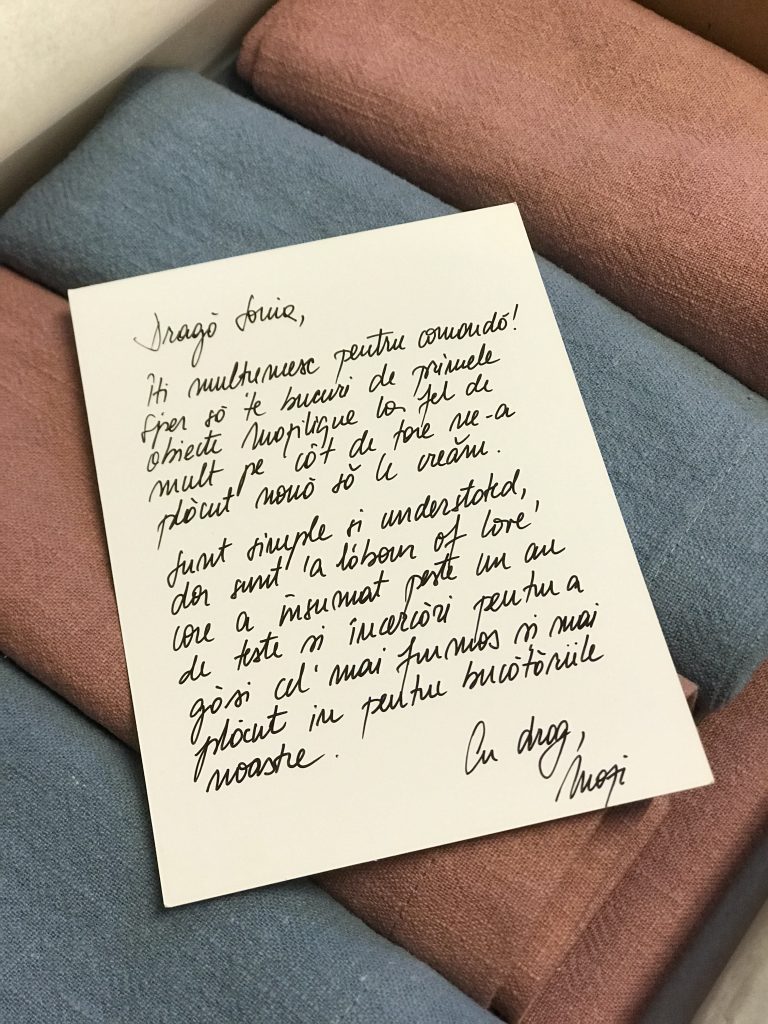 Dragă Sonia,
Îti multumesc pentru comandă!
Sper să te bucuri de primele
obiecte Mogilique la fel de
mult pe cât de tare ne-a
plăcut nouă să le creăm.
Sunt simple si understated,
dar sunt 'a labour of love'
care a însumat peste un an
de teste si încercări pentru a
găsi cel mai frumos și mai
plăcut in pentru bucătăriile
noastre.
Cu drag,